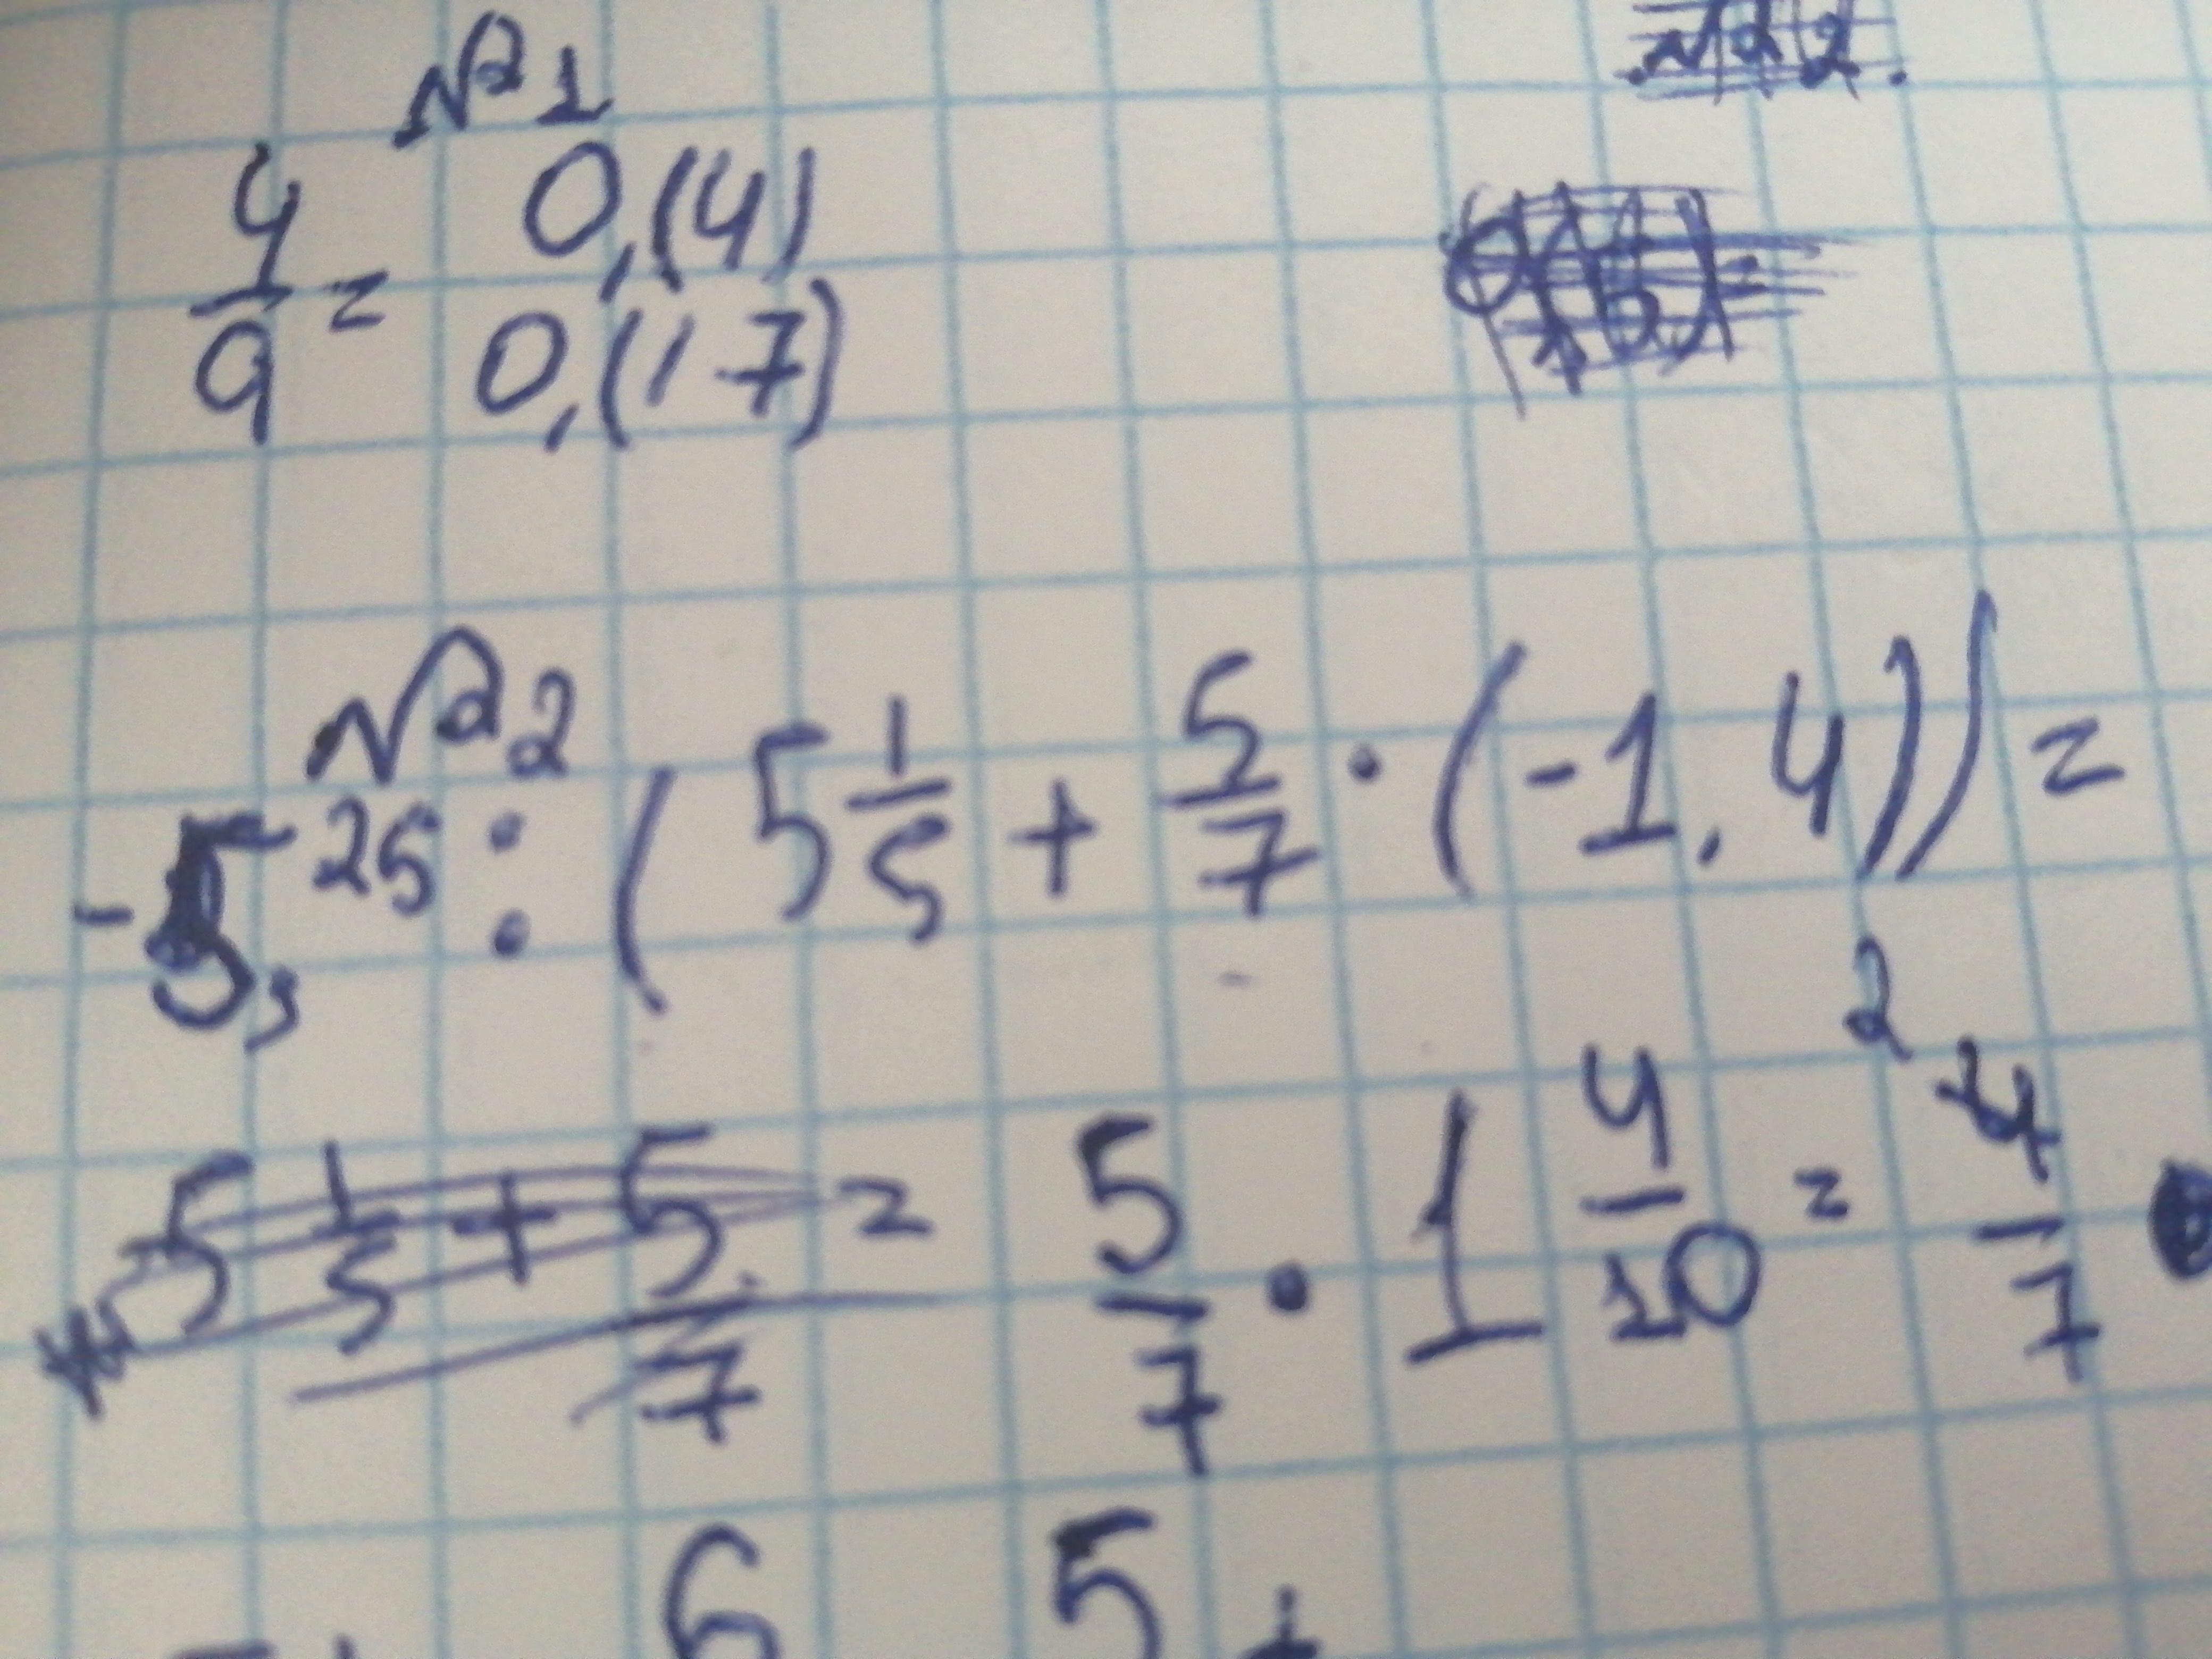 №1
4/9 = 0,(4)
0,(17)
№2
-5,25 : (5 1/5 + 5/7 · (-1,4)) =
5 1/5 + 5/7 = 5/7 · 1 4/10 = 2 4/7
6 5